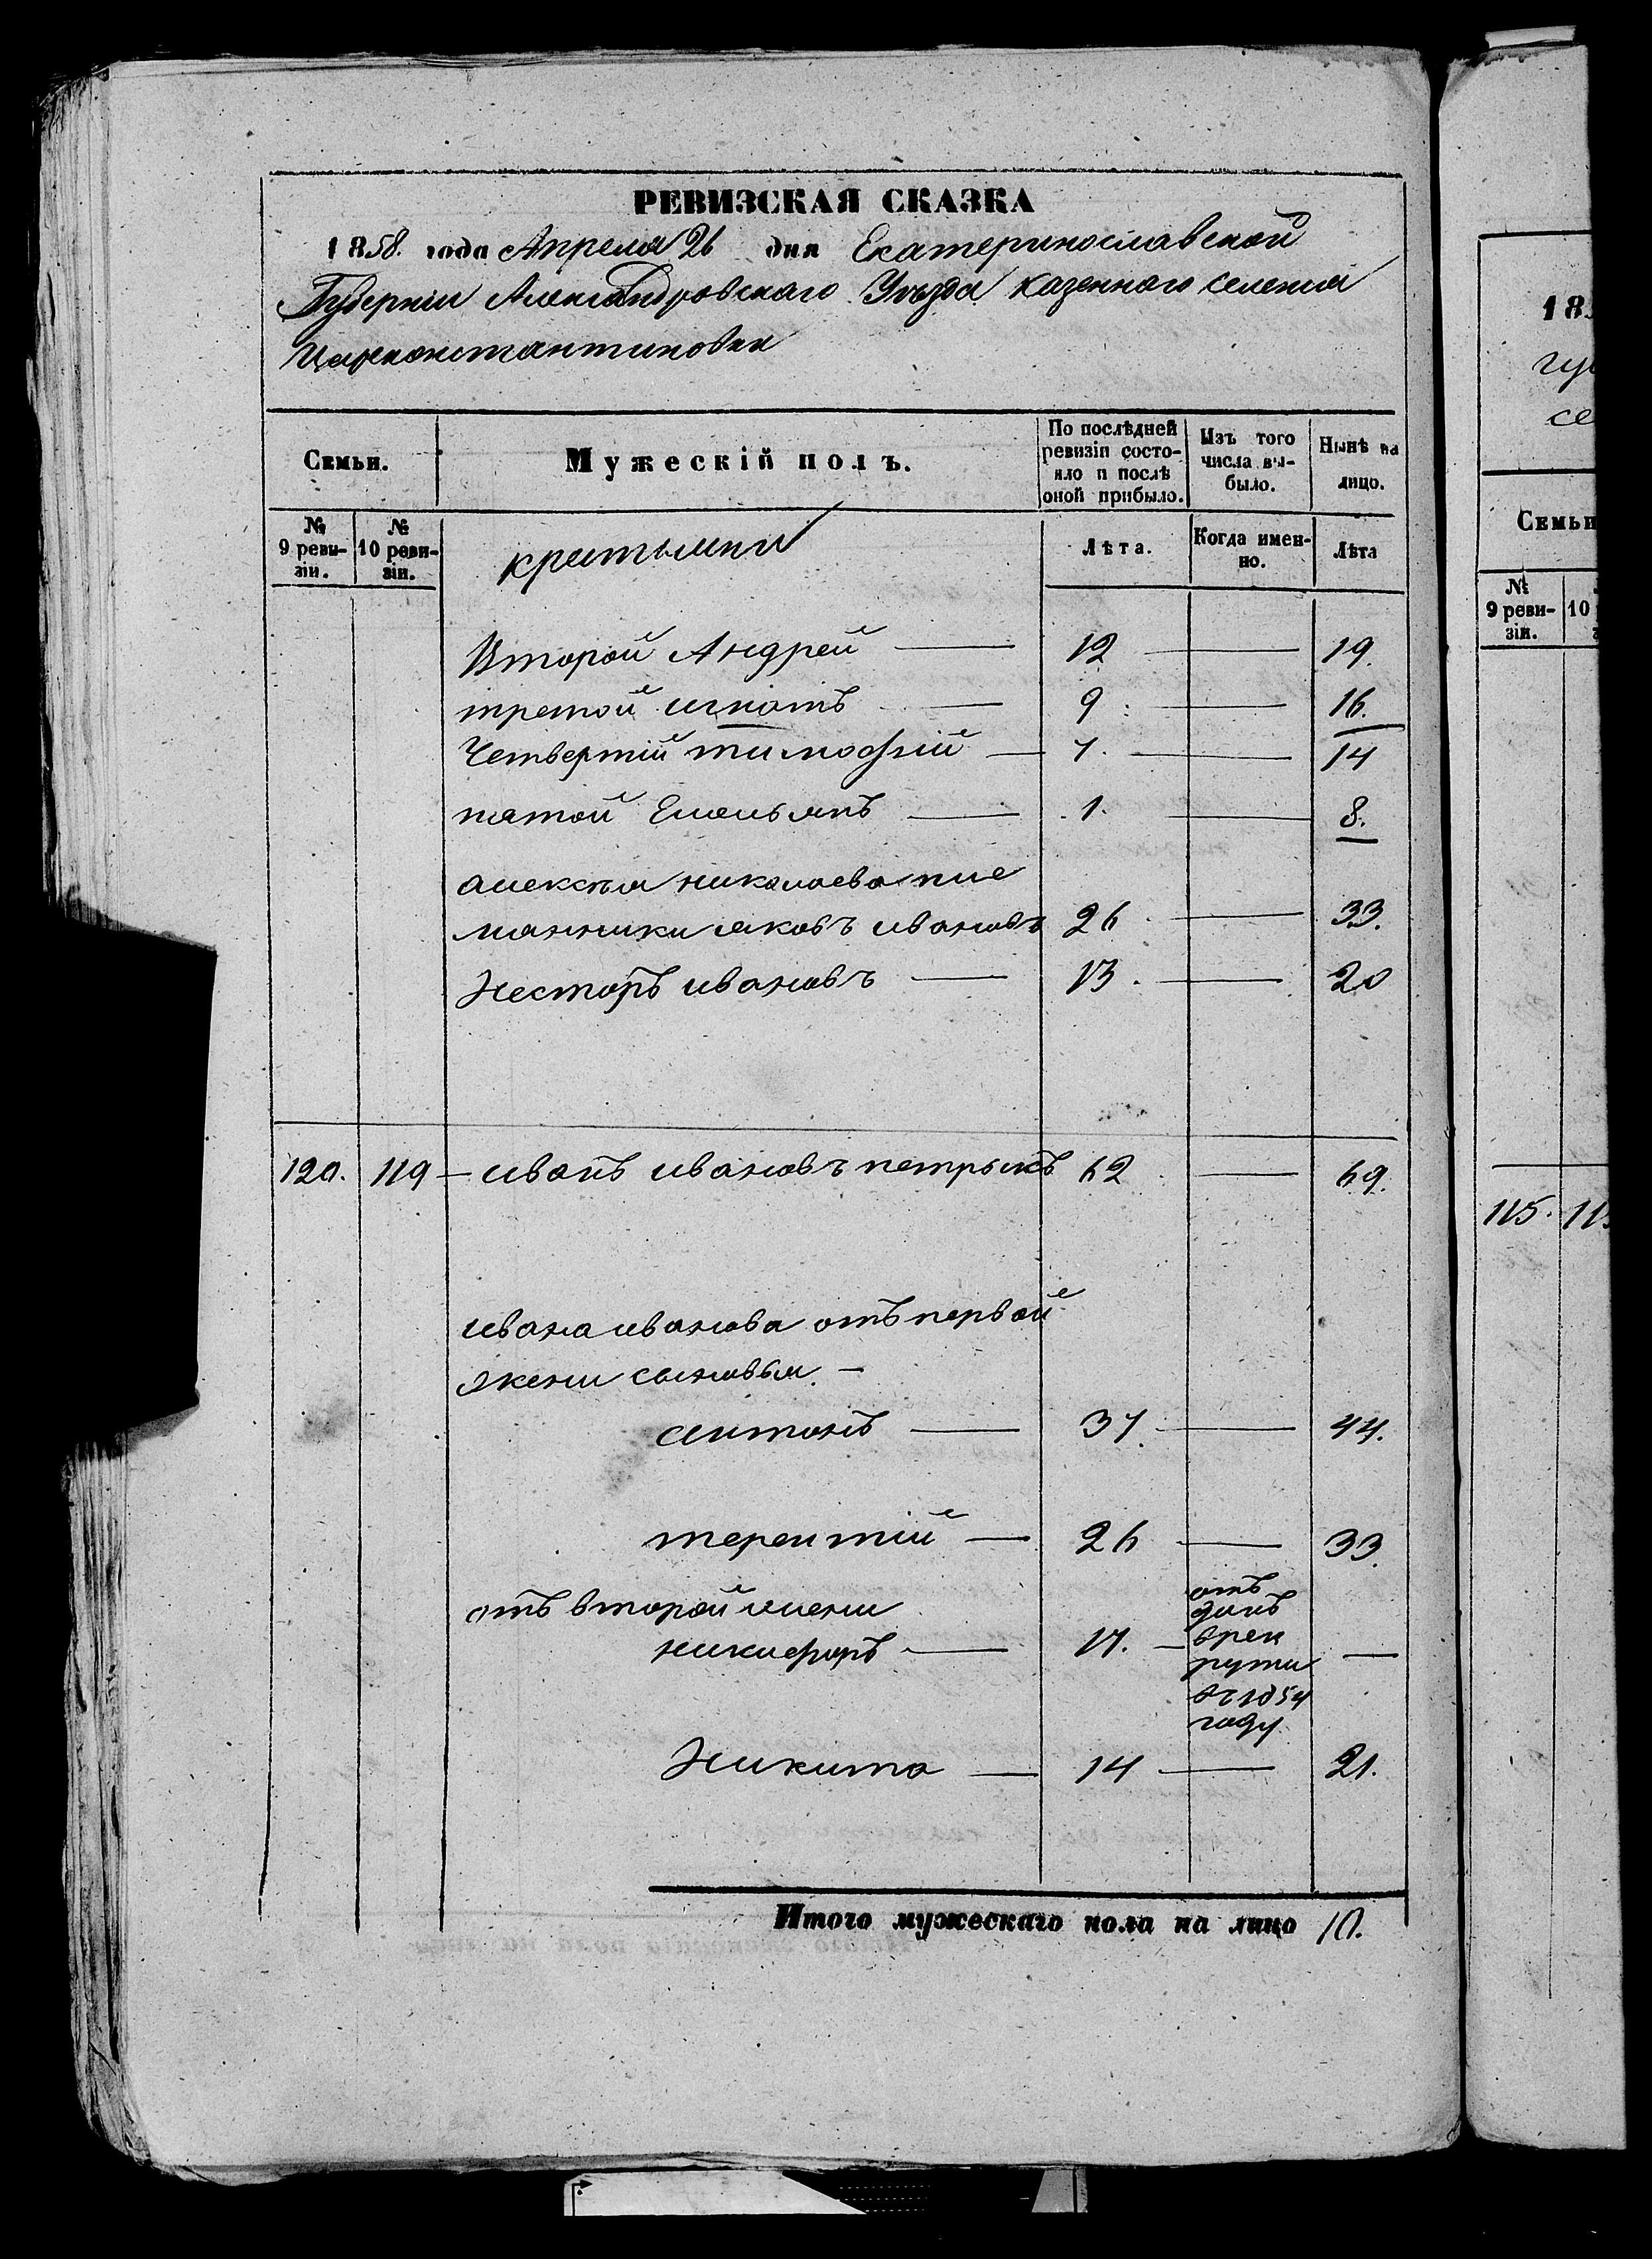 РЕВИЗСКАЯ СКАЗКА
1858. года Апреля 26 дня Екатеринославской
Губерніи Александровскаго Уѣзда казенного селенія
Цареконстантиновки
Семьи. Мужескій полъ. По послѣдней ревизіи состояло и послѣ оной прибыло. Изъ того числа выбыло. Нынѣ на лицо.
№ 9 ревизіи. № 10 ревизіи. Лѣта. Когда именно. Лѣта
Второй Андрей — 12 — 19.
третой игнатъ — 9 — 16.
Четвертій тимофій — 7. — 14
пятой Емельянъ — 1. — 8.
алексѣя николаева пле
мянники яковъ ивановъ 26 — 33.
Несторъ ивановъ — 13. — 20
120. 119 — иванъ ивановъ петрыкъ 62 — 69.
ивана иванова отъ первой
жени сыновья. —
антонъ — 37. — 44.
терентій — 26 — 33.
отъ второй жени
никифоръ — 17. — отъ
данъ
врек
рути
въ 1854
году —
Никита — 14 — 21.
Итого мужескаго пола на лицо 10.
18
гу
се
Семьи
№ 9 ревизіи. 10
115. 11